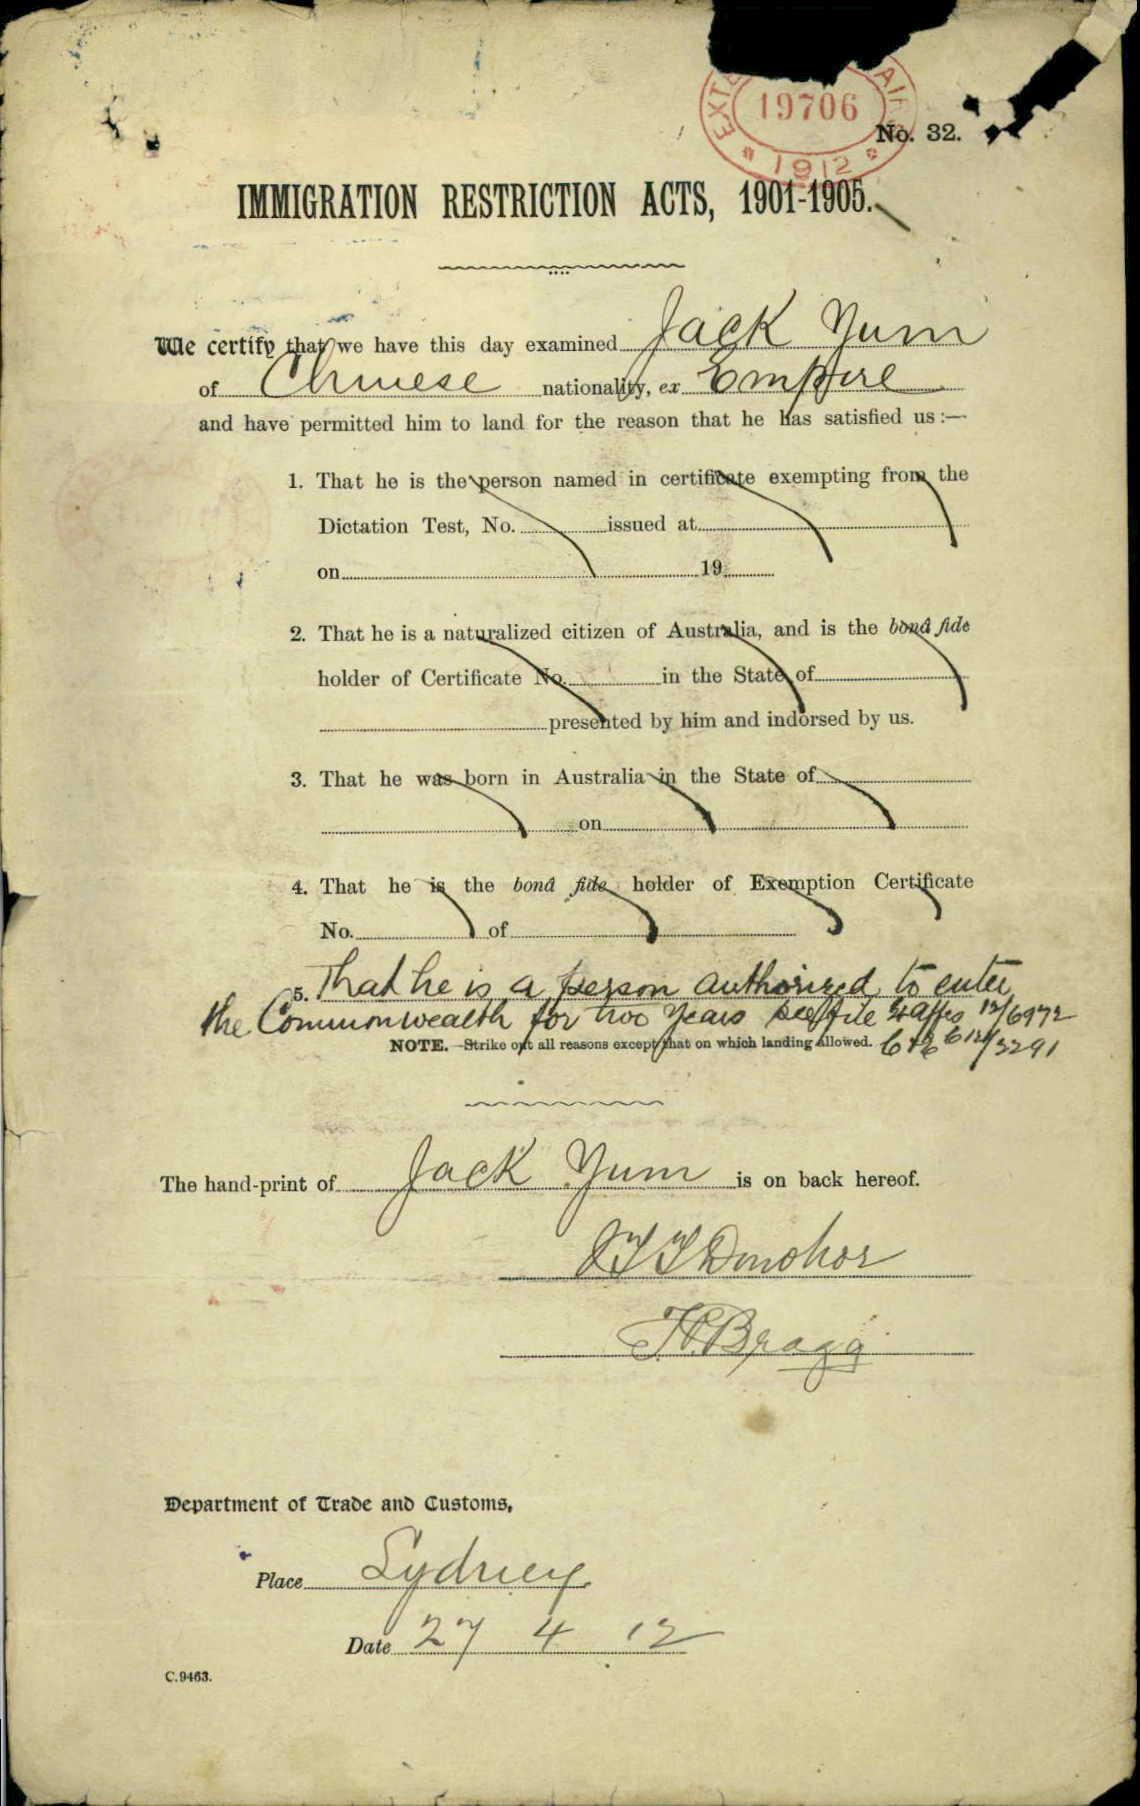 19706
1912
No. 32.
IMMIGRATION RESTRICTION ACTS, 1901-1905.
We certify that we have this day examined Jack Yum
of Chinese nationality, ex Empire
and have permitted him to land for the reason that he has satisfied us:—
1. That he is the person named in certificate exempting from the
Dictation Test, No. issued at
on 19
2. That he is a naturalized citizen of Australia, and is the bonâ fide
holder of Certificate No. in the State of
presented by him and indorsed by us.
3. That he was born in Australia in the State of
on
4. That he is the bonâ fide holder of Exemption Certificate
No. of
5. That he is a person authorized to enter
the Commonwealth for two years see file 12/6972
NOTE.—Strike out all reasons except that on which landing allowed. C & E 12/3291
The hand-print of Jack Yum is on back hereof.
Donohoe
Bragg
Department of Trade and Customs,
Place Sydney
Date 27 4 12
C.9463.